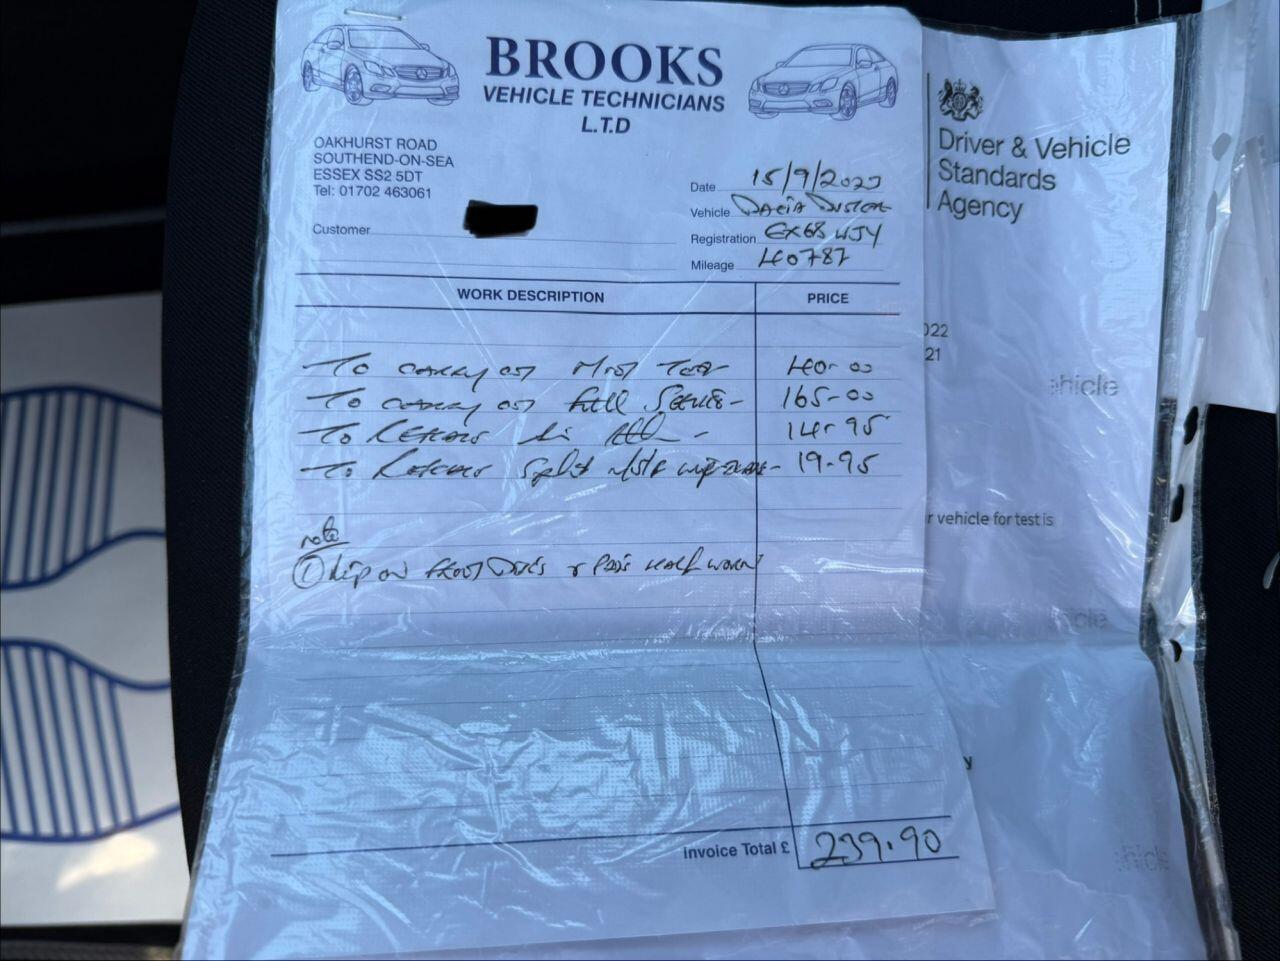 BROOKS
VEHICLE TECHNICIANS
L.T.D
OAKHURST ROAD
SOUTHEND-ON-SEA
ESSEX SS2 5DT
Tel: 01702 463061
Customer
Date 15/9/2023
Vehicle Dacia Duster
Registration EX68 WJY
Mileage 40787
WORK DESCRIPTION PRICE
To carry out Mot Test 40-00
To carry out full Service - 165-00
To Renew Air - 14-95
To Renew split n/s/f wiper - 19-95
note
① Lip on front Discs & Pads Half worn
Invoice Total £ 239.90
Driver & Vehicle
Standards
Agency
022
21
hicle
r vehicle for test is
icle
y
hicle